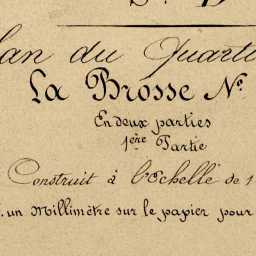 lan du Quarti
La Brosse N°
En deux parties
1ère Partie
Construit à l'Echelle de 1
un Millimètre sur le papier pour